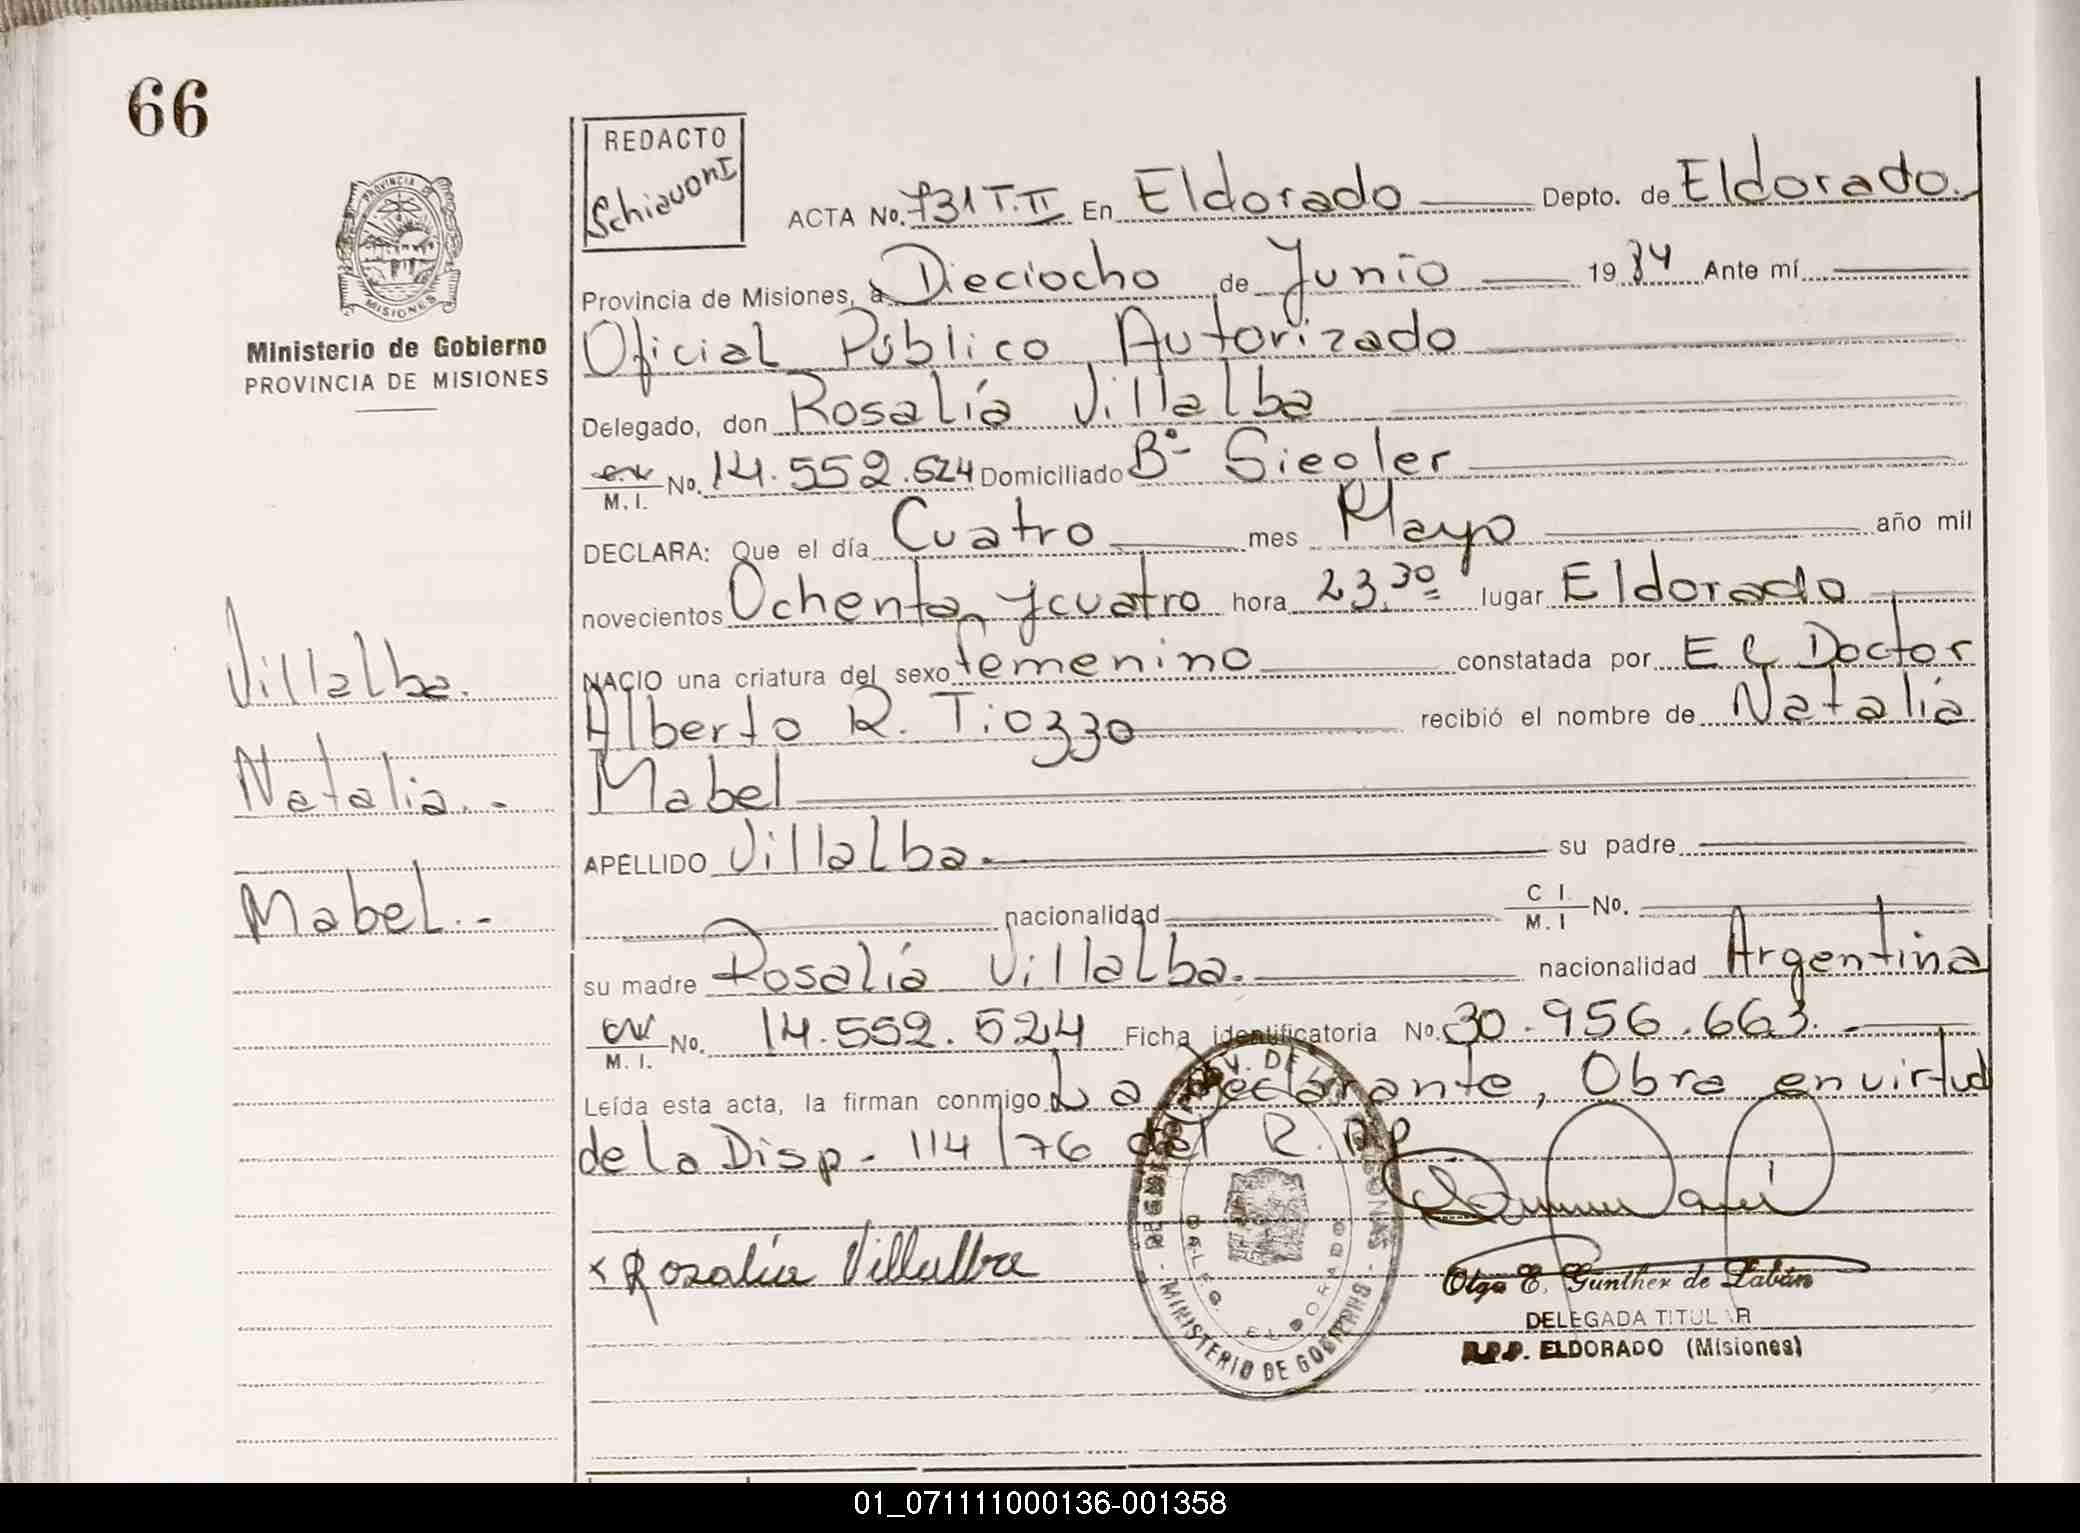 66
REDACTO
Schiavoni
PROVINCIA DE
MISIONES
Ministerio de Gobierno
PROVINCIA DE MISIONES
ACTA No. 731 T.II En Eldorado Depto. de Eldorado.
Provincia de Misiones, a Dieciocho de Junio 1984 Ante mí
Oficial Público Autorizado
Delegado, don Rosalía Villalba
M. I. No. 14.552.524 Domiciliado Bº Siegler
DECLARA: Que el día Cuatro mes Mayo año mil
novecientos Ochenta y cuatro hora 23.30 lugar Eldorado
NACIO una criatura del sexo femenino constatada por El Doctor
Alberto R. Tiozzo recibió el nombre de Natalia
Mabel
APELLIDO Villalba. su padre
nacionalidad C I. M. I No.
su madre Rosalía Villalba. nacionalidad Argentina
M. I. No. 14.552.524 Ficha identificatoria No. 30.956.663.-
Leída esta acta, la firman conmigo La declarante, Obra en virtud
de la Disp - 114/76 del R.P.P
Villalba.
Natalia.-
Mabel.-
x Rosalía Villalba
MINISTERIO DE GOBIERNO
DELEG. ELDORADO
Olga E. Gunther de Labán
DELEGADA TITULAR
R.P.P. ELDORADO (Misiones)
01_071111000136-001358